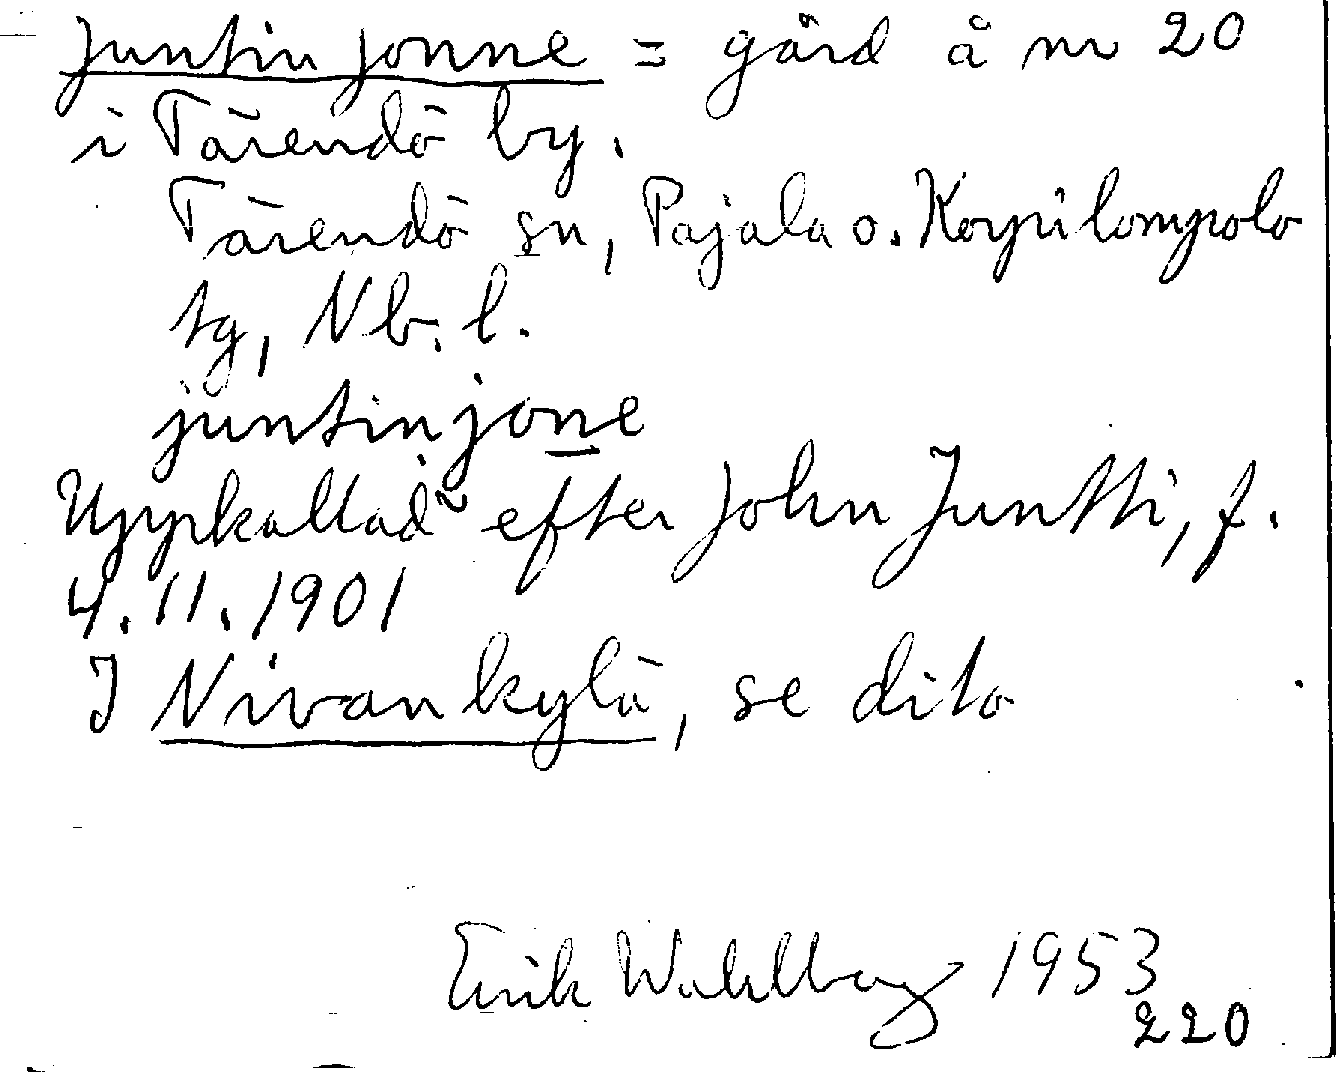 Juntin Jonne = gård å nr 20
i Tärendö by.
Tärendö sn, Pajala o. Korpilompolo
tg, Nb. l.
juntinjone
Uppkallad efter John Juntti, f.
4.11.1901
I Nivankylä, se dito
Erik Wahlberg 1953
220